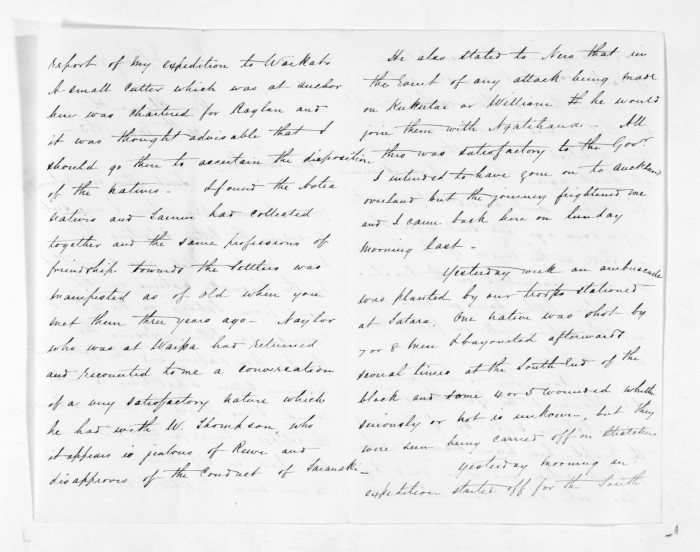 report of my expedition to Waikato
A small cutter which was at anchor
here was chartered for Raglan and
it was thought advisable that I
should go there to ascertain the disposition
of the natives - I found the Aotea
natives and had collected
together and the same professions of
friendship towards the settlers was
manifested as of old when you
met them three years ago - Naylor
who was at Waipa had returned
and recounted to me a conversation
of a very satisfactory nature which
he had with W. Thompson, who
it appears is jealous of Rewi and
disapproves of the conduct of Taranaki -
He also stated to that in
the event of any attack being made
on Kukutai or William he would
join them with - All
this was satisfactory to the Govr
I intended to have gone on to Auckland
overland but the journey frightened me
and I came back here on Sunday
morning last -
Yesterday week an ambuscade
was planted by our troops stationed
at Tatara. One native was shot by
7 or 8 men & bayoneted afterwards
several times at the South End of the
block and some 4 or 5 wounded whether
seriously or not is unknown, but they
were seen being carried off on stretchers
Yesterday morning an
expedition started off for the South